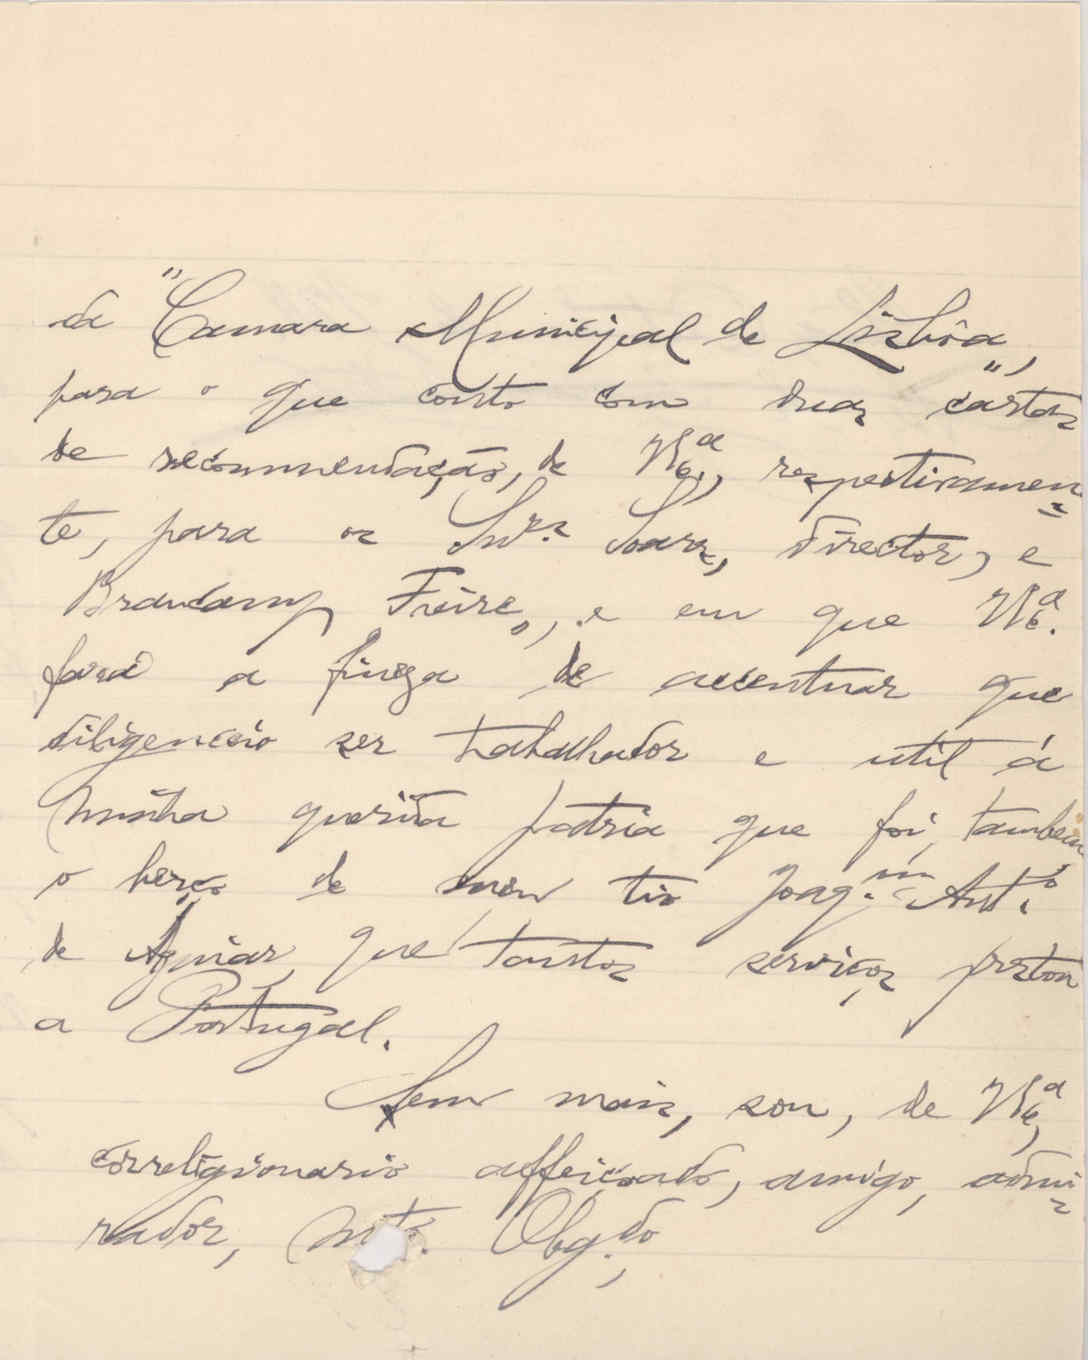 da "Camara Municipal de Lisbôa",
para o que conto com duas cartas
de recommendação, de V. Ex.ª, respectivamen-
te, para os Snrs. Soares, director, e
Braamcamp Freire, e em que V. Ex.ª
fará a fineza de accentuar que
diligenceio ser trabalhador e util á
minha querida patria que foi, tambem
o berço de meu tio Joaq.m Ant.º
de Aguiar, que tantos serviços prestou
a Portugal.
Sem mais, sou, de V. Ex.ª,
correligionario affeiçoado, amigo, admi-
rador, Obg.do,